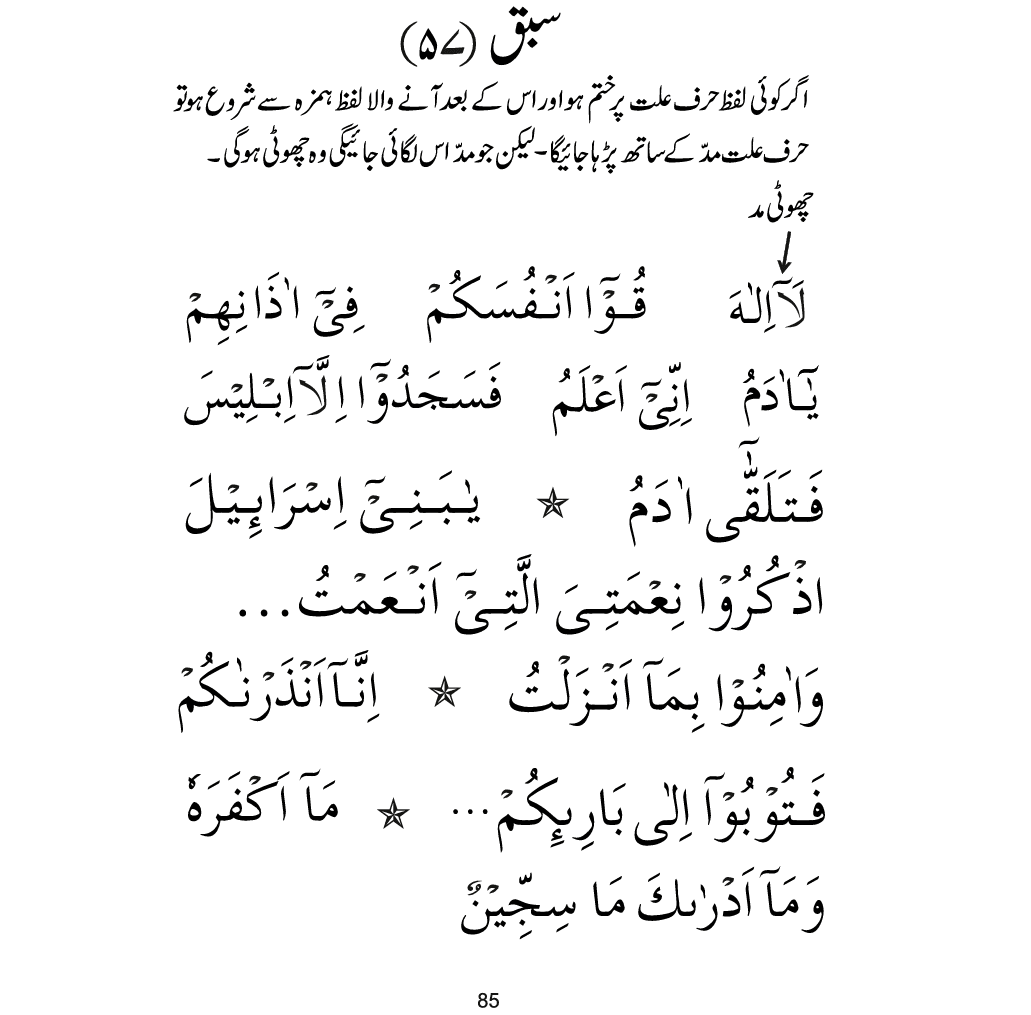 سبق (۵۷)
اگر کوئی لفظ حرف علت پر ختم ہو اور اس کے بعد آنے والا لفظ ہمزہ سے شروع ہو تو
حرف علت مدّ کے ساتھ پڑہا جائیگا۔ لیکن جو مدّ اس لگائی جائیگی وہ چھوٹی ہوگی۔
چھوٹی مد
لَآ اِلٰهَ قُوْٓا اَنْفُسَكُمْ فِیْٓ اٰذَانِهِمْ
یٰٓاٰدَمُ اِنِّیْٓ اَعْلَمُ فَسَجَدُوْٓا اِلَّآ اِبْلِیْسَ
فَتَلَقّٰٓی اٰدَمُ ☆ یٰبَنِیْٓ اِسْرَاءِیْلَ
اذْكُرُوْا نِعْمَتِیَ الَّتِیْٓ اَنْعَمْتُ...
وَاٰمِنُوْا بِمَآ اَنْزَلْتُ ☆ اِنَّآ اَنْذَرْنٰكُمْ
فَتُوْبُوْٓا اِلٰی بَارِئِكُمْ... ☆ مَآ اَكْفَرَهٗ
وَمَآ اَدْرٰىكَ مَا سِجِّیْنٌ
85